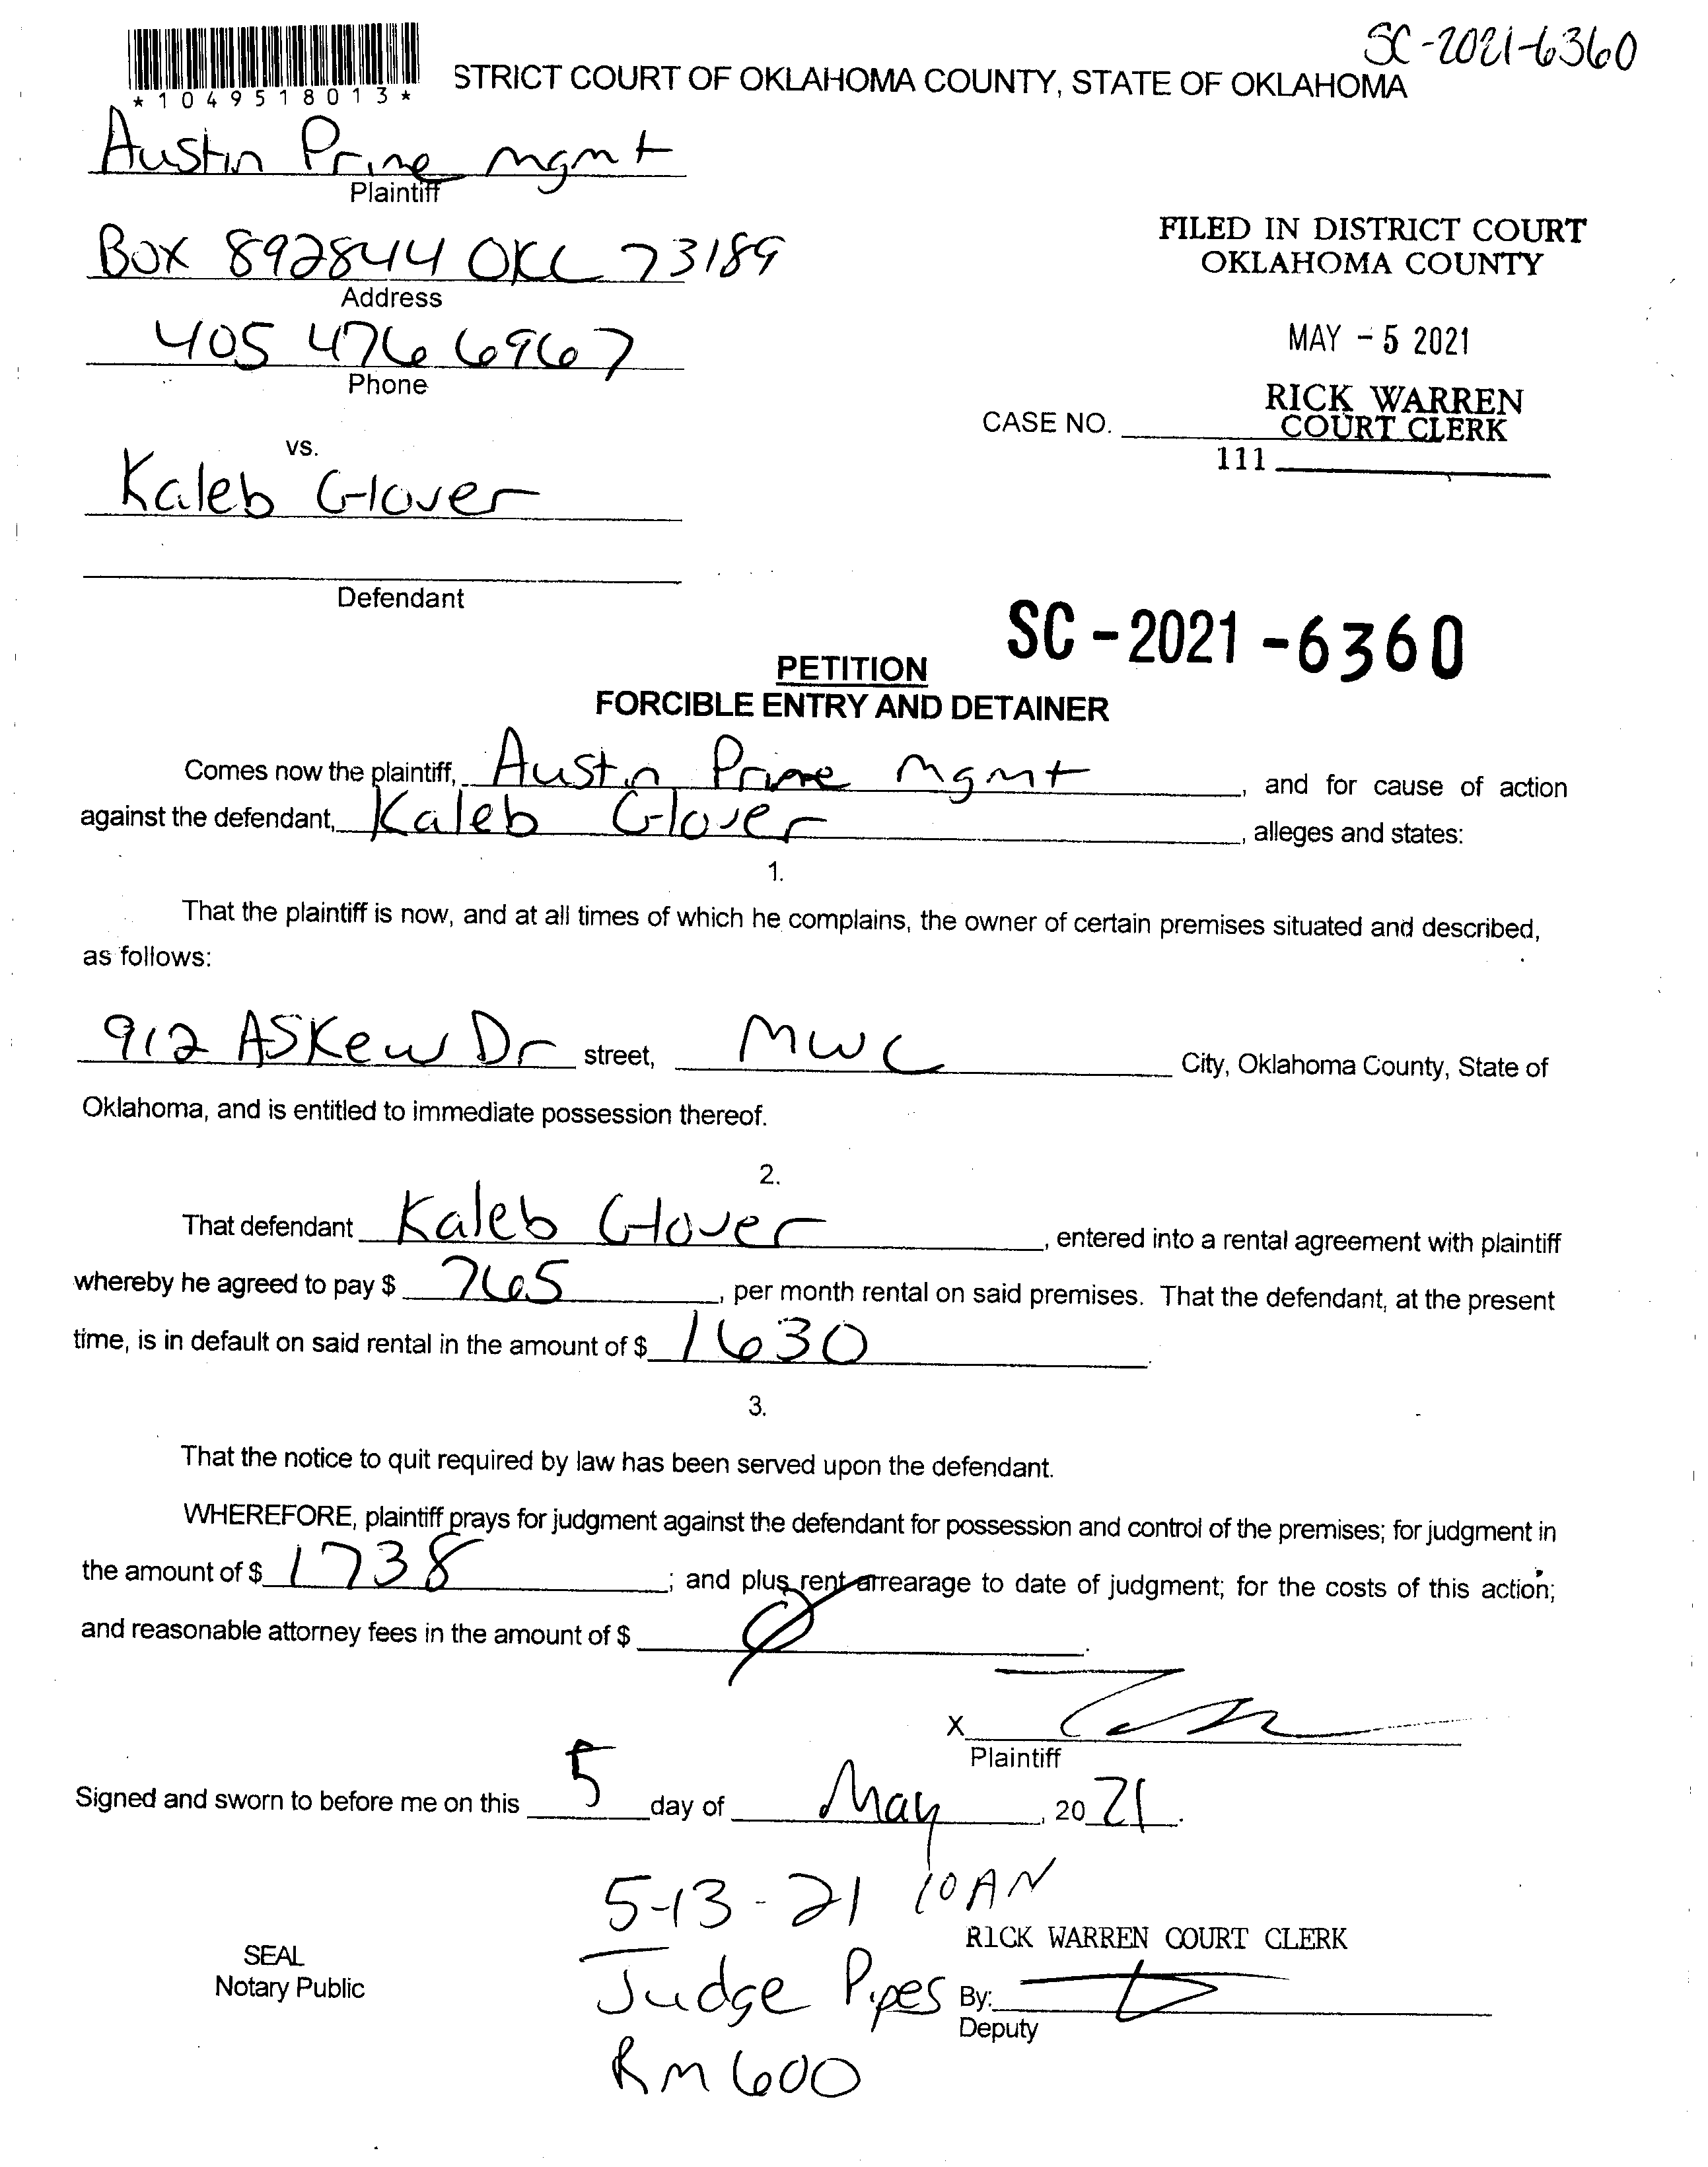 SC-2021-6360
*1049518013*
STRICT COURT OF OKLAHOMA COUNTY, STATE OF OKLAHOMA
Austin Prime mgmt
Plaintiff
Box 892844 OKC 73189
Address
405 476 6967
Phone
vs.
Kaleb Glover
Defendant
FILED IN DISTRICT COURT
OKLAHOMA COUNTY
MAY - 5 2021
RICK WARREN
COURT CLERK
CASE NO.
111
SC - 2021 - 6360
PETITION
FORCIBLE ENTRY AND DETAINER
Comes now the plaintiff, Austin Prime mgmt, and for cause of action
against the defendant, Kaleb Glover, alleges and states:
1.
That the plaintiff is now, and at all times of which he complains, the owner of certain premises situated and described,
as follows:
912 ASKew Dr street, MWC City, Oklahoma County, State of
Oklahoma, and is entitled to immediate possession thereof.
2.
That defendant Kaleb Glover, entered into a rental agreement with plaintiff
whereby he agreed to pay $ 765, per month rental on said premises. That the defendant, at the present
time, is in default on said rental in the amount of $ 1630.
3.
That the notice to quit required by law has been served upon the defendant.
WHEREFORE, plaintiff prays for judgment against the defendant for possession and control of the premises; for judgment in
the amount of $ 1738; and plus rent arrearage to date of judgment; for the costs of this action;
and reasonable attorney fees in the amount of $ Ø.
X
Plaintiff
Signed and sworn to before me on this 5 day of May, 2021.
5-13-21 10AM
RICK WARREN COURT CLERK
SEAL
Notary Public
Judge Pipes
By:
Deputy
Rm 600